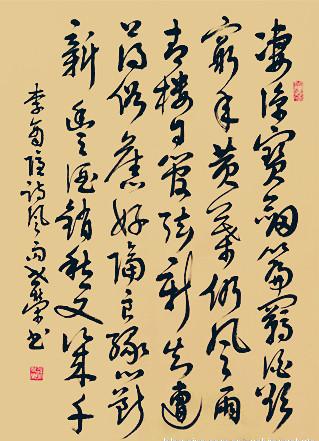 淒涼寶劍篇羈泊欲
窮年黄葉仍風雨
青樓自管弦新知遭
薄俗舊好隔良緣心断
新豐酒銷愁又幾千
李商隱詩風雨 榮書